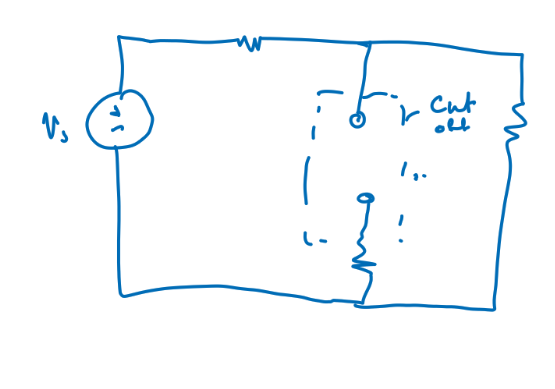 Vs
+
−
Cut
off